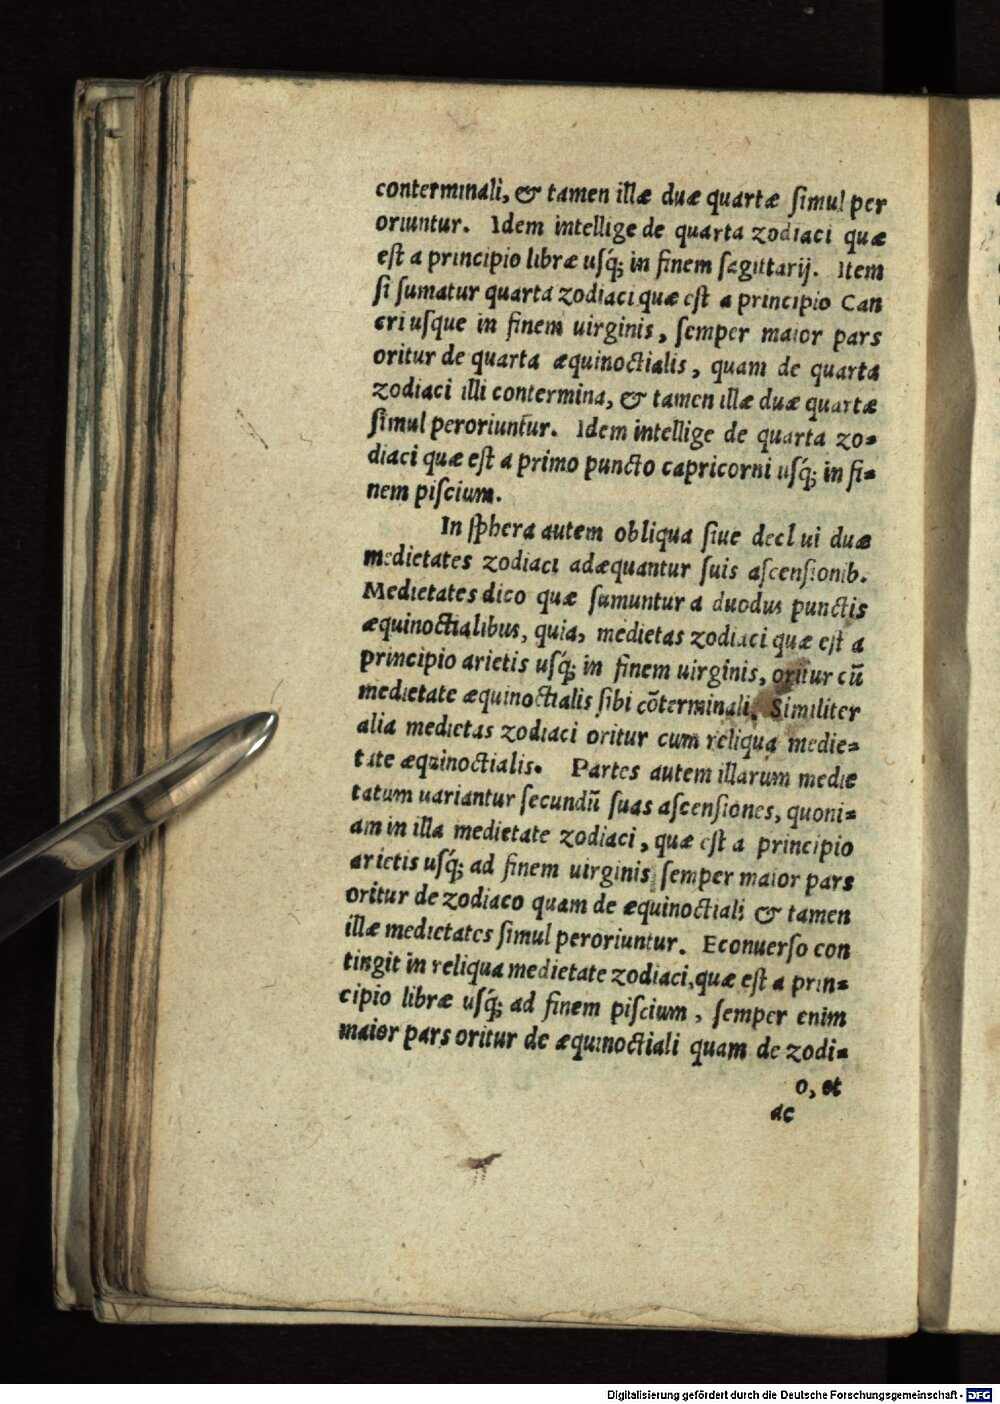 conterminali, & tamen illæ duæ quartæ ſimul per
oriuntur. Idem intellige de quarta zodiaci quæ
eſt a principio libræ uſq́; in finem ſagittarij. Item
ſi ſumatur quarta zodiaci quæ eſt a principio Can
cri uſque in finem uirginis, ſemper maior pars
oritur de quarta æquinoctialis, quam de quarta
zodiaci illi contermina, & tamen illæ duæ quartæ
ſimul peroriuntur. Idem intellige de quarta zo=
diaci quæ eſt a primo puncto capricorni uſq́; in fi=
nem piſcium.
In ſphera autem obliqua ſiue decl ui duæ
medietates zodiaci adæquantur ſuis aſcenſionib.
Medietates dico quæ ſumuntur a duodus punctis
æquinoctialibus, quia, medietas zodiaci quæ eſt a
principio arietis uſq́; in finem uirginis, oritur cū
medietate æquinoctialis ſibi cōterminali. Similiter
alia medietas zodiaci oritur cum reliqua medie=
tate æqzinoctialis. Partes autem illarum medie
tatum uariantur ſecundū ſuas aſcenſiones, quoni=
am in illa medietate zodiaci, quæ eſt a principio
arietis uſq́; ad finem uirginis, ſemper maior pars
oritur de zodiaco quam de æquinoctiali & tamen
illæ medietates ſimul peroriuntur. Econuerſo con
tingit in reliqua medietate zodiaci, quæ eſt a prin=
cipio libræ uſq́; ad finem piſcium, ſemper enim
maior pars oritur de æquinoctiali quam de zodi=
o, et
ac
Digitalisierung gefördert durch die Deutsche Forschungsgemeinschaft - DFG